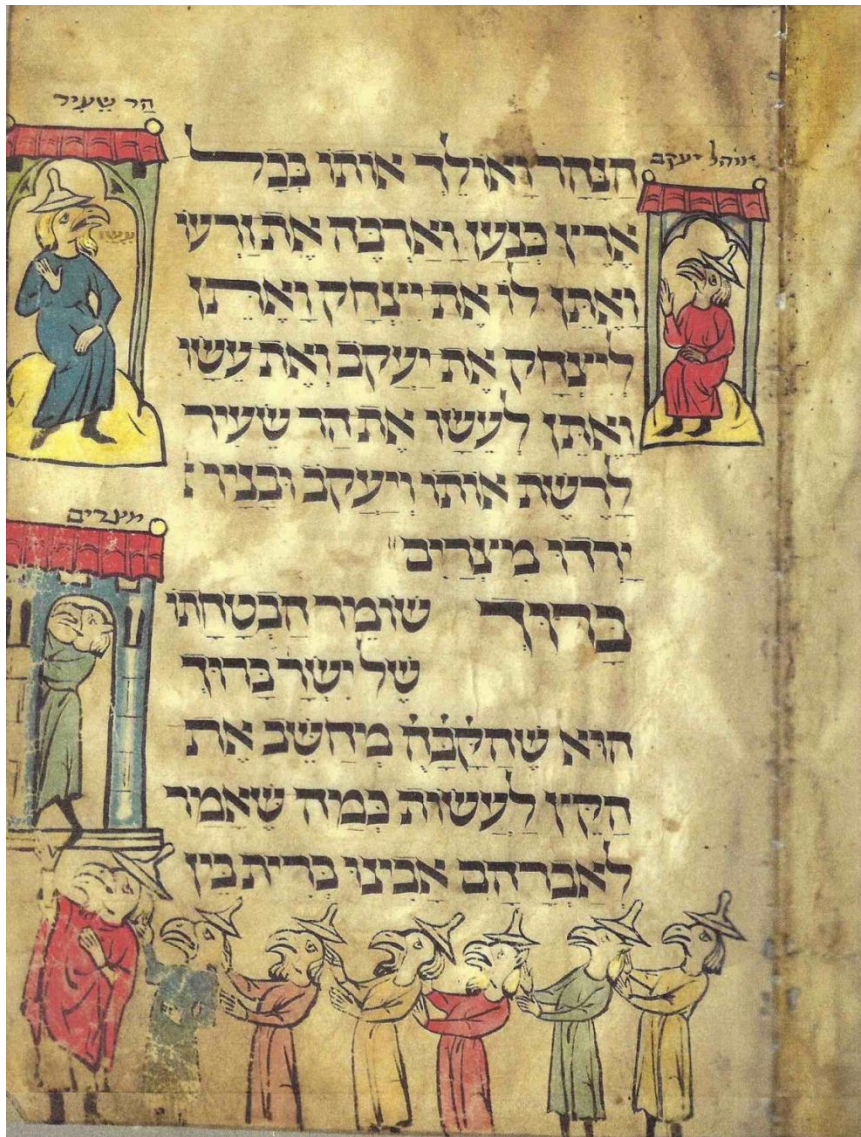 הַר שֵעִיר
אוהל יעקב
עשו
הַנָּהָר וָאוֹלֵךְ אוֹתוֹ בְּכָל
אֶרֶץ כְּנַעַן וָאַרְבֶּה אֶת זַרְעוֹ
וָאֶתֵּן לוֹ אֶת יִצְחָק וָאֶתֵּן
לְיִצְחָק אֶת יַעֲקֹב וְאֶת עֵשָׂו
וָאֶתֵּן לְעֵשָׂו אֶת הַר שֵׂעִיר
לָרֶשֶׁת אוֹתוֹ וְיַעֲקֹב וּבָנָיו
מצרים
יָרְדוּ מִצְרָיִם
בָּרוּךְ שׁוֹמֵר הַבְטָחָתוֹ
שֶׁל יִשְׂרָ בָּרוּךְ
הוּא שֶׁהַקָּבָּהֿ מְחַשֵּׁב אֶת
הַקֵּץ לַעֲשׂוֹת כְּמָה שֶׁאָמַר
לְאַבְרָהָם אָבִינוּ בְּרִית בֵּין